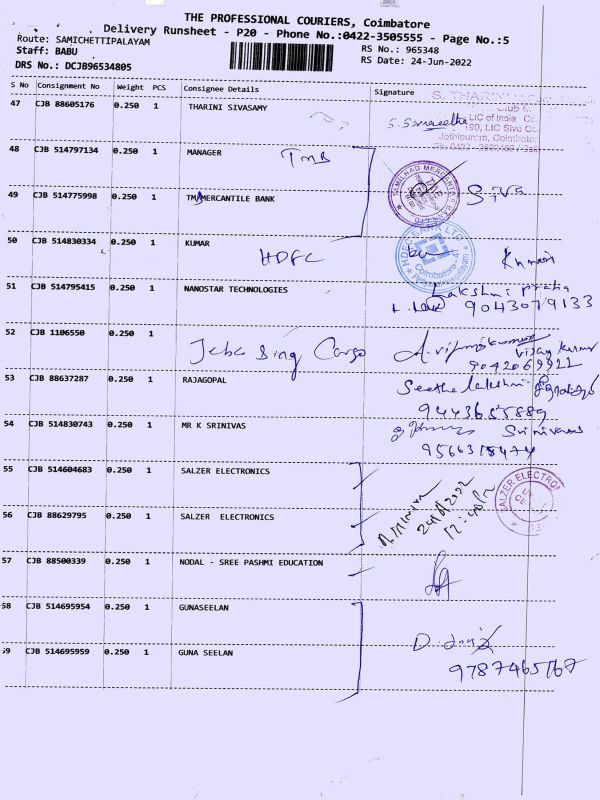 THE PROFESSIONAL COURIERS, Coimbatore
Delivery Runsheet - P20 - Phone No.:0422-3505555 - Page No.:5
Route: SAMICHETTIPALAYAM
RS No.: 965348
Staff: BABU
RS Date: 24-Jun-2022
DRS No.: DCJB96534805
S No Consignment No Weight PCS Consignee Details Signature
47 CJB 88605176 0.250 1 THARINI SIVASAMY
48 CJB 514797134 0.250 1 MANAGER TMB
49 CJB 514775998 0.250 1 TM MERCANTILE BANK Siva
50 CJB 514830334 0.250 1 KUMAR HDFC Kumar
HDFC BANK LTD
51 CJB 514795415 0.250 1 NANOSTAR TECHNOLOGIES Lakshmi Priya
9043079133
52 CJB 1106550 1 Jeba Sing Cargo Vijay Kumar
9042069922
53 CJB 88637287 0.250 1 RAJAGOPAL Seethalakshmi
9443655889
54 CJB 514830743 0.250 1 MR K SRINIVAS Srinivas
9566315474
55 CJB 514604683 0.250 1 SALZER ELECTRONICS
SALZER ELECTRO
56 CJB 88629795 0.250 1 SALZER ELECTRONICS
57 CJB 88500339 0.250 1 NODAL - SREE PASHMI EDUCATION
58 CJB 514695954 0.250 1 GUNASEELAN
59 CJB 514695959 0.250 1 GUNA SEELAN
9787465767